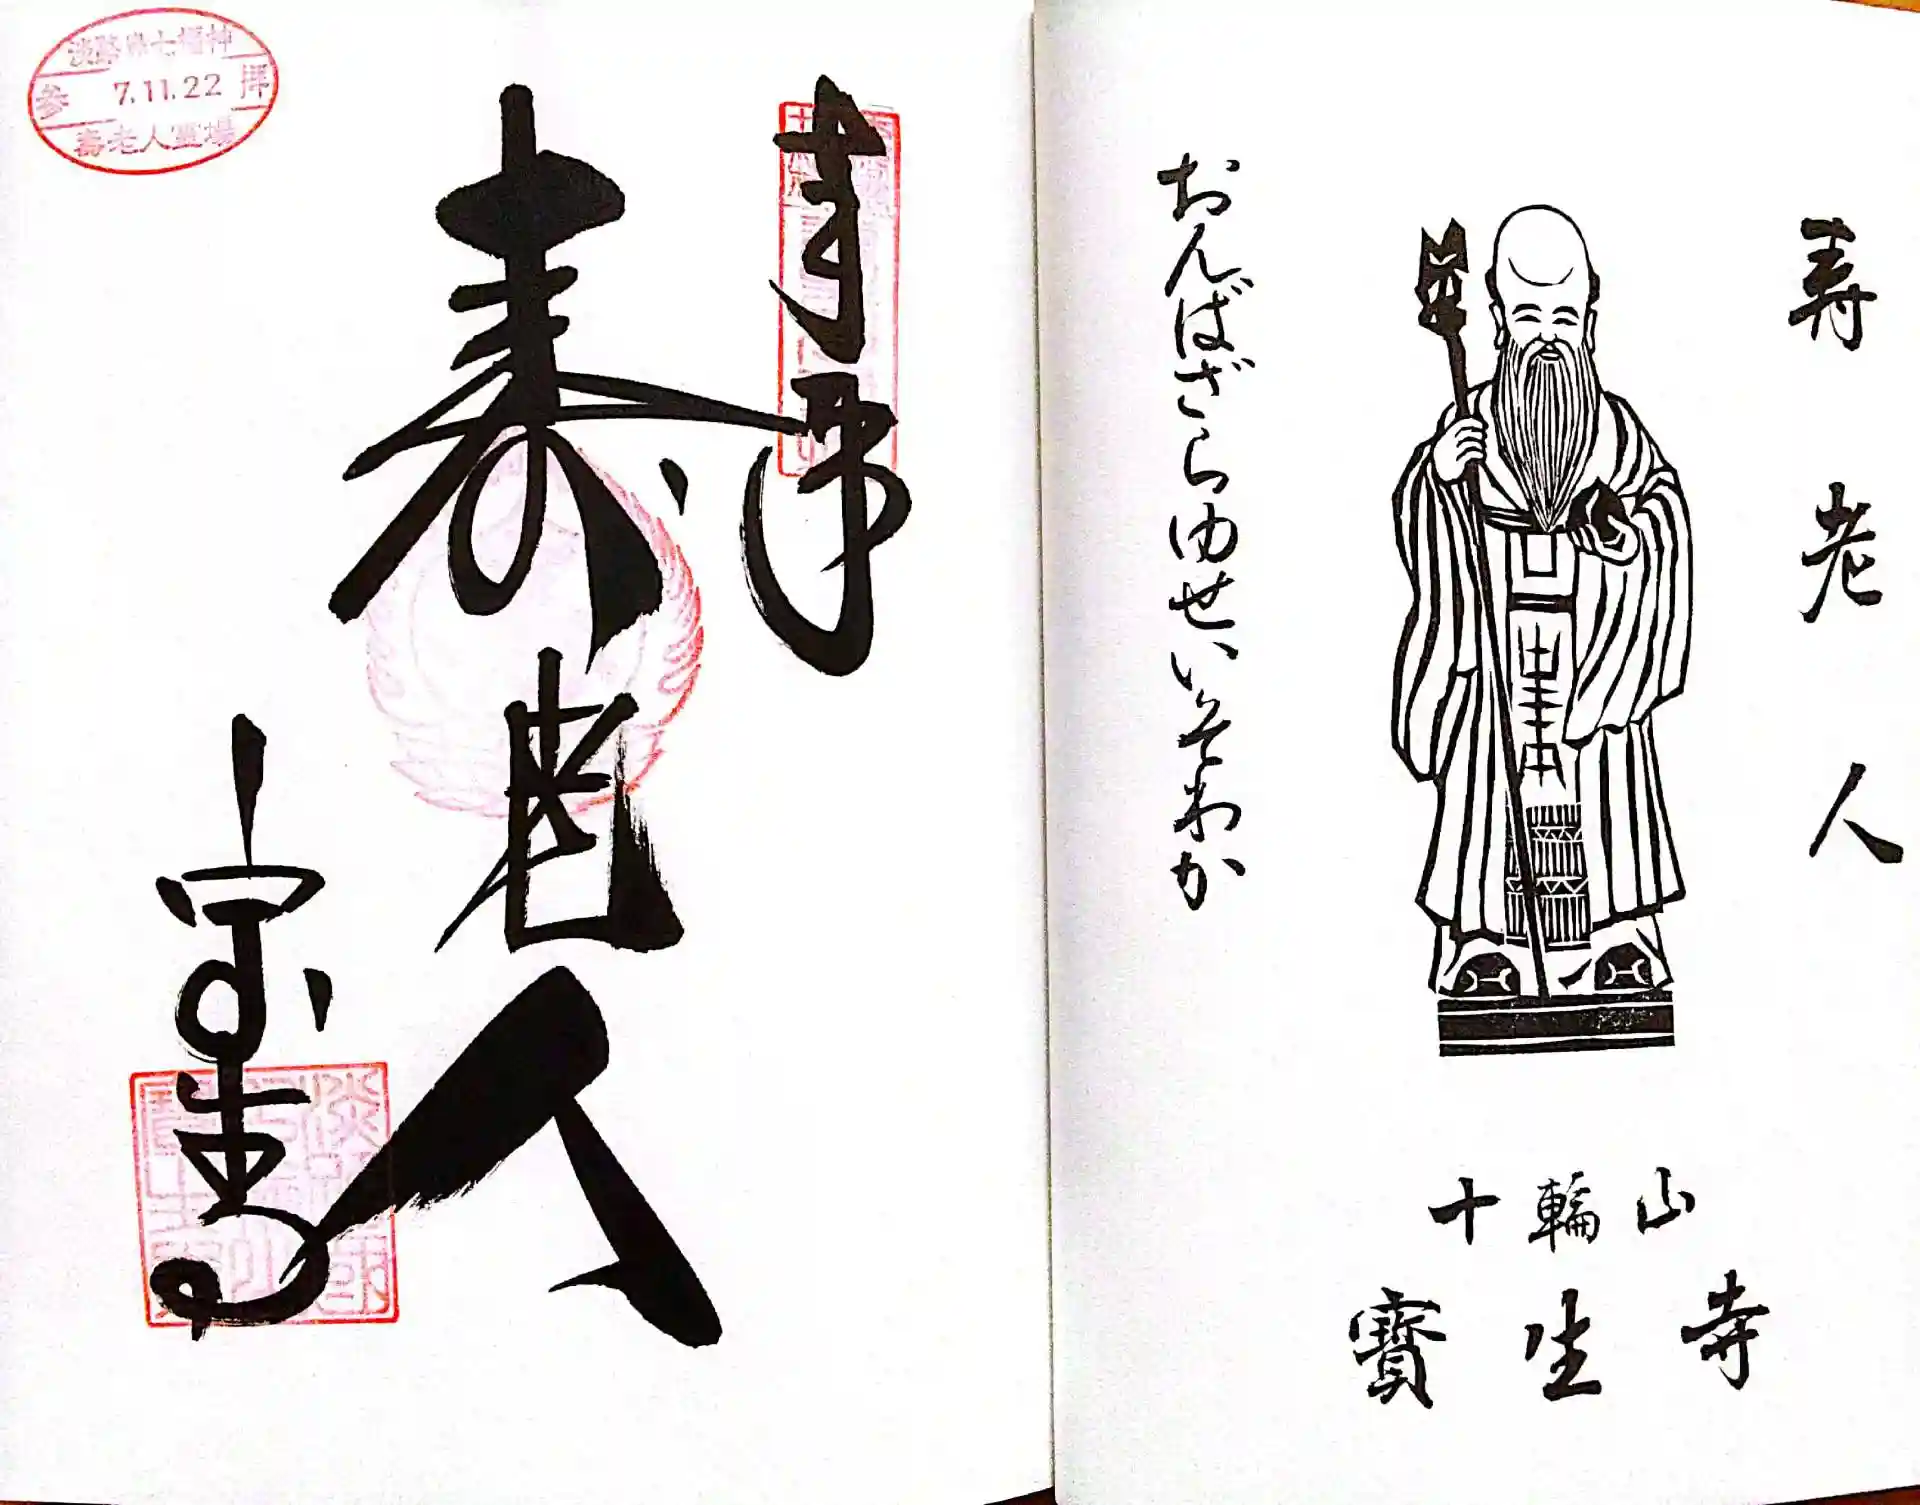 寿
老
人
おんばざらゆせいそわか
十輪山
寳生寺
奉拝
寿老人
宝生寺
淡路島七福神
参拝
7.11.22
壽老人霊場